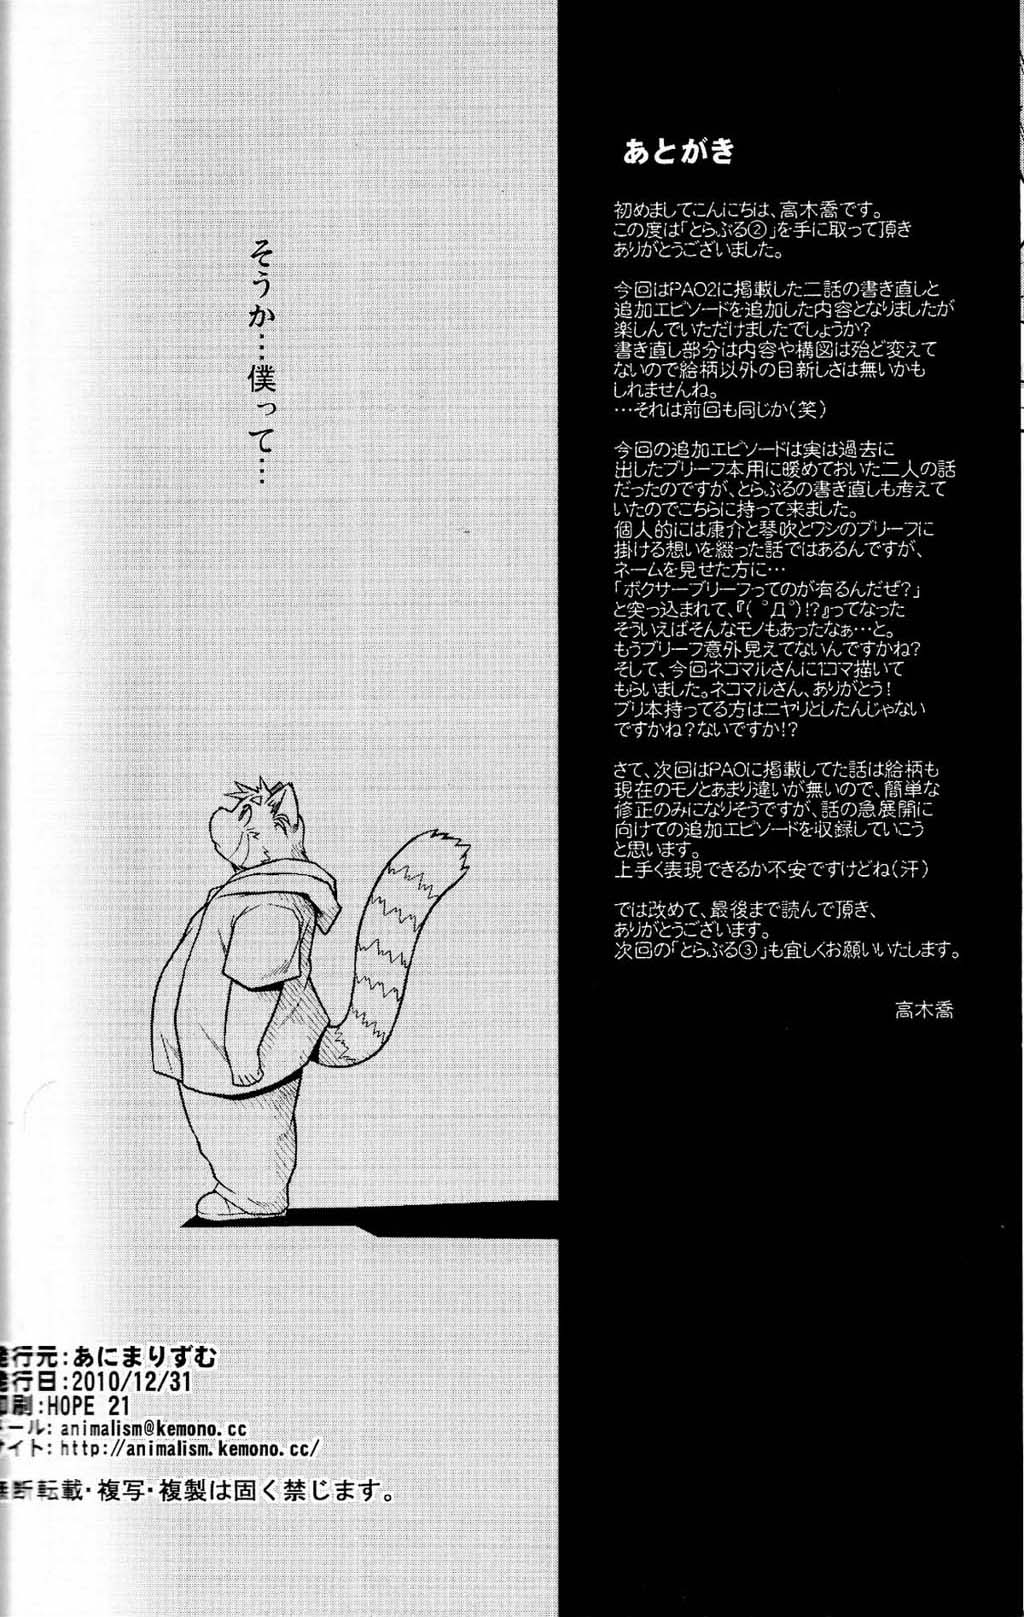 あとがき
初めましてこんにちは、高木喬です。
この度は「とらぶる②」を手に取って頂き
ありがとうございました。
今回はPAO2に掲載した二話の書き直しと
追加エピソードを追加した内容となりましたが
楽しんでいただけましたでしょうか?
書き直し部分は内容や構図は殆ど変えて
ないので絵柄以外の目新しさは無いかも
しれませんね。
…それは前回も同じか(笑)
今回の追加エピソードは実は過去に
出したブリーフ本用に暖めておいた二人の話
だったのですが、とらぶるの書き直しも考えて
いたのでこちらに持って来ました。
個人的には康介と琴吹とワシのブリーフに
掛ける想いを綴った話ではあるんですが、
ネームを見せた方に…
「ボクサーブリーフってのが有るんだぜ?」
と突っ込まれて、『( ゜Д゜)!?』ってなった
そういえばそんなモノもあったなぁ…と。
もうブリーフ意外見えてないんですかね?
そして、今回ネコマルさんに1コマ描いて
もらいました。ネコマルさん、ありがとう!
ブリ本持ってる方はニヤリとしたんじゃない
ですかね?ないですか!?
さて、次回はPAOに掲載してた話は絵柄も
現在のモノとあまり違いが無いので、簡単な
修正のみになりそうですが、話の急展開に
向けての追加エピソードを収録していこう
と思います。
上手く表現できるか不安ですけどね(汗)
では改めて、最後まで読んで頂き、
ありがとうございます。
次回の「とらぶる③」も宜しくお願いいたします。
高木喬
そうか…僕って…
発行元:あにまりずむ
発行日:2010/12/31
印刷:HOPE 21
メール: animalism@kemono.cc
サイト: http://animalism.kemono.cc/
無断転載・複写・複製は固く禁じます。